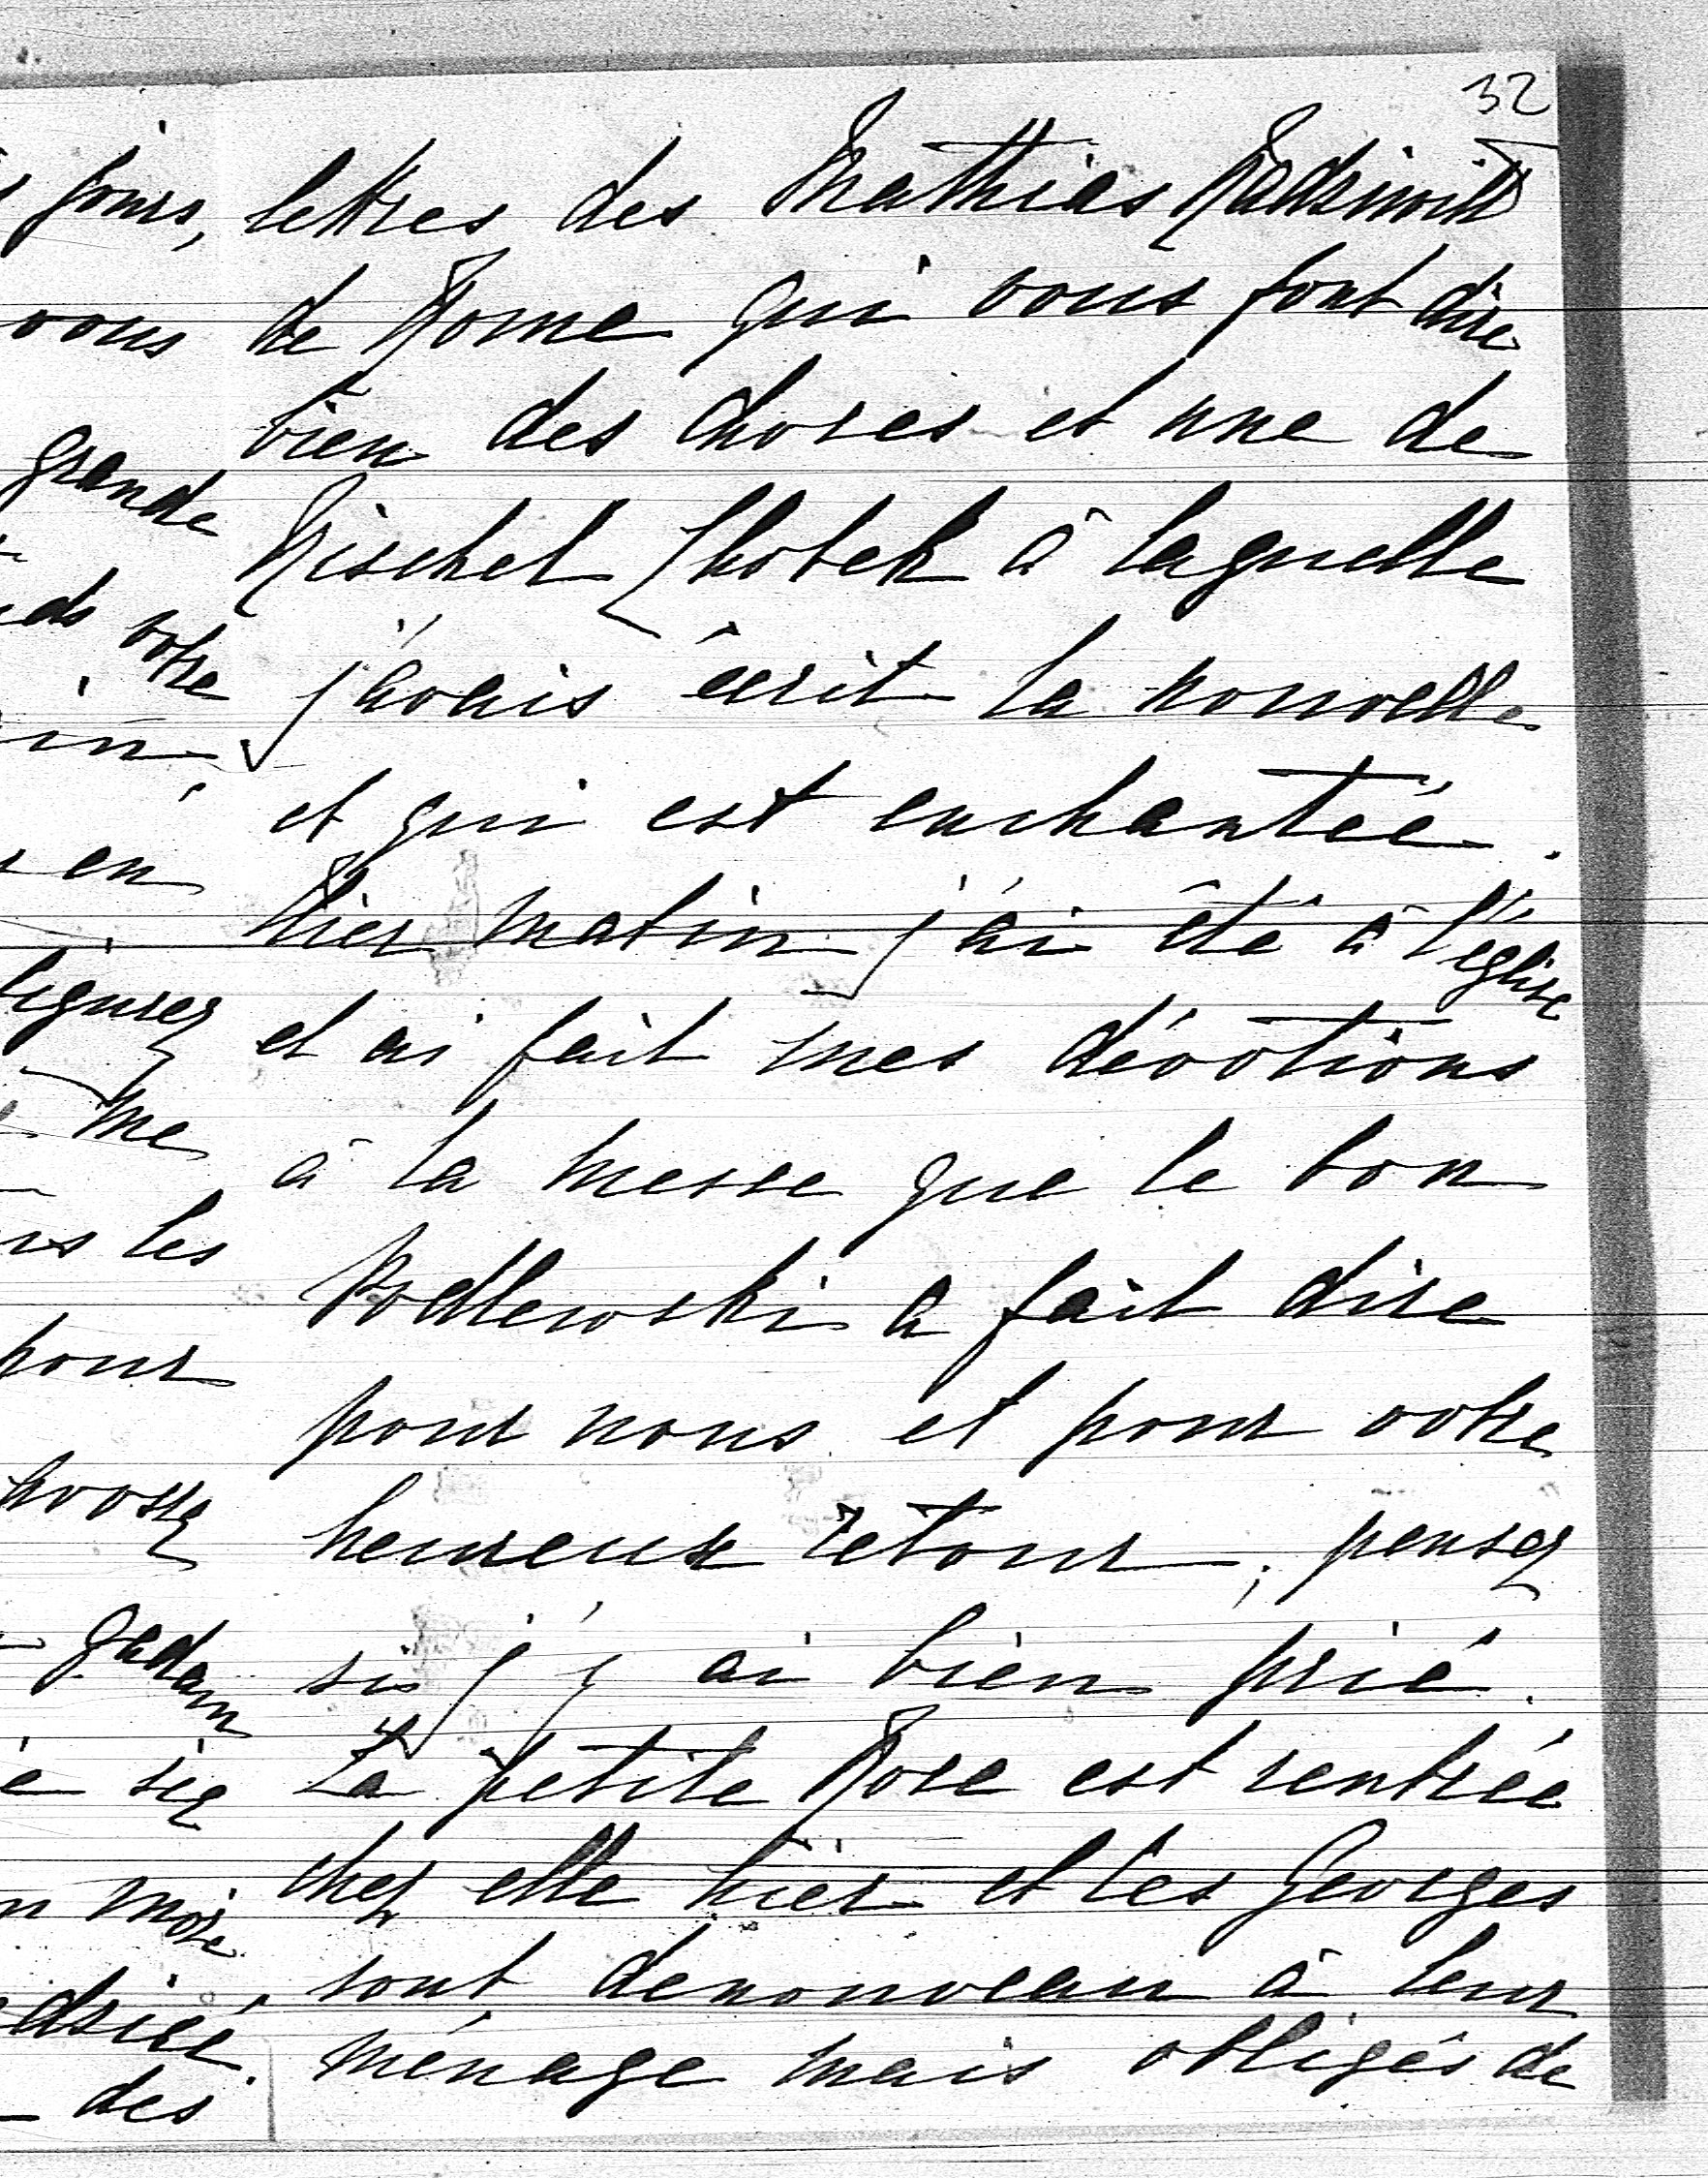 32
lettres des Mathias Radziwill
de Rome qui vous font dire
bien des choses et une de
Rischel Chotek à laquelle
j'avais écrit la nouvelle
et qui est enchantée.
Hier matin j'ai été à l'église
et ai fait mes dévotions
à la messe que le bon
Podlewski a fait dire
pour nous et pour votre
heureux retour; pensez
si j'y ai bien prié.
La petite Rose est rentrée
chez elle hier et les Georges
sont denouveau à leur
ménage mais obligés de
jours,
vous
grande
votre
en
me
les
pour
des